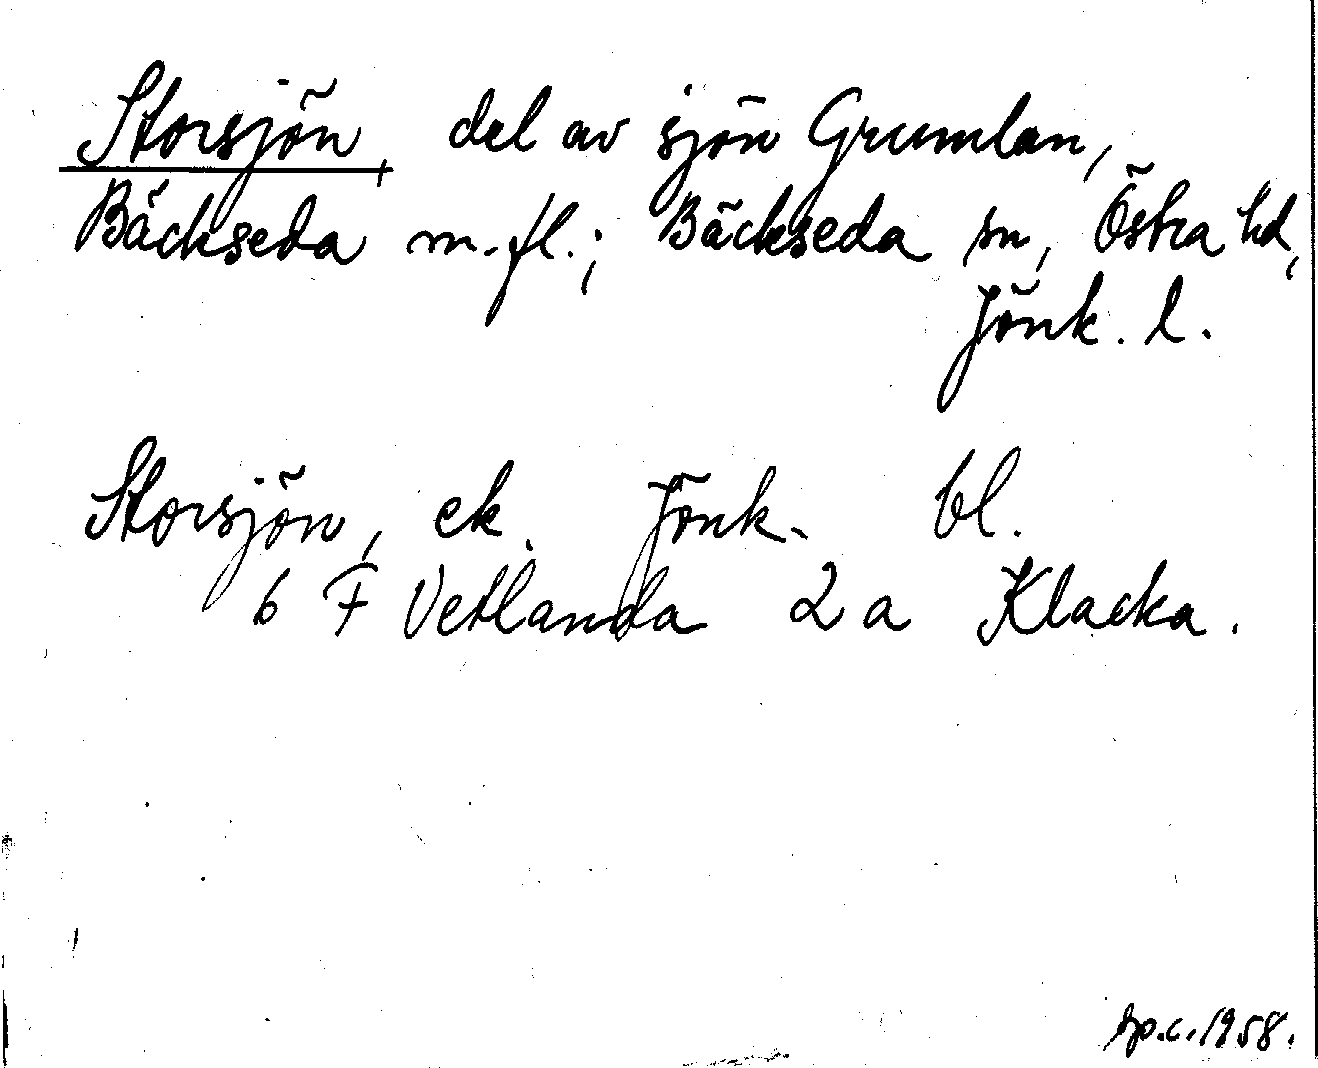 Storsjön, del av sjön Grumlan,
Bäckseda m.fl.; Bäckseda sn, Östra hd,
Jönk. l.
Storsjön, ek. Jönk. bl.
6 F Vetlanda 2 a Klacka.
hp.c. 1958.